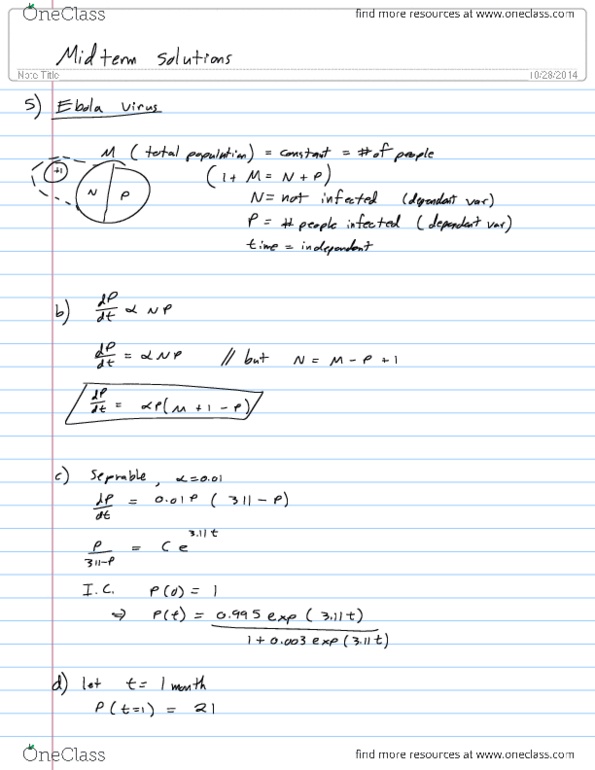 OneClass
find more resources at www.oneclass.com
Midterm solutions
Note Title
10/28/2014
5) Ebola virus
M (total population) = constant = # of people
+1
(1 + M = N + P)
N P
N = not infected (dependant var)
P = # people infected (dependent var)
time = independent
b) dP/dt ∝ NP
dP/dt = αNP // but N = M - P + 1
dP/dt = αP(M + 1 - P)
c) Seprable, α=0.01
dP/dt = 0.01P (311 - P)
P/311-P = C e^3.11t
I.C. P(0) = 1
⇒ P(t) = 0.995 exp (3.11t)
1 + 0.003 exp(3.11t)
d) let t = 1 month
P(t=1) = 21
OneClass
find more resources at www.oneclass.com